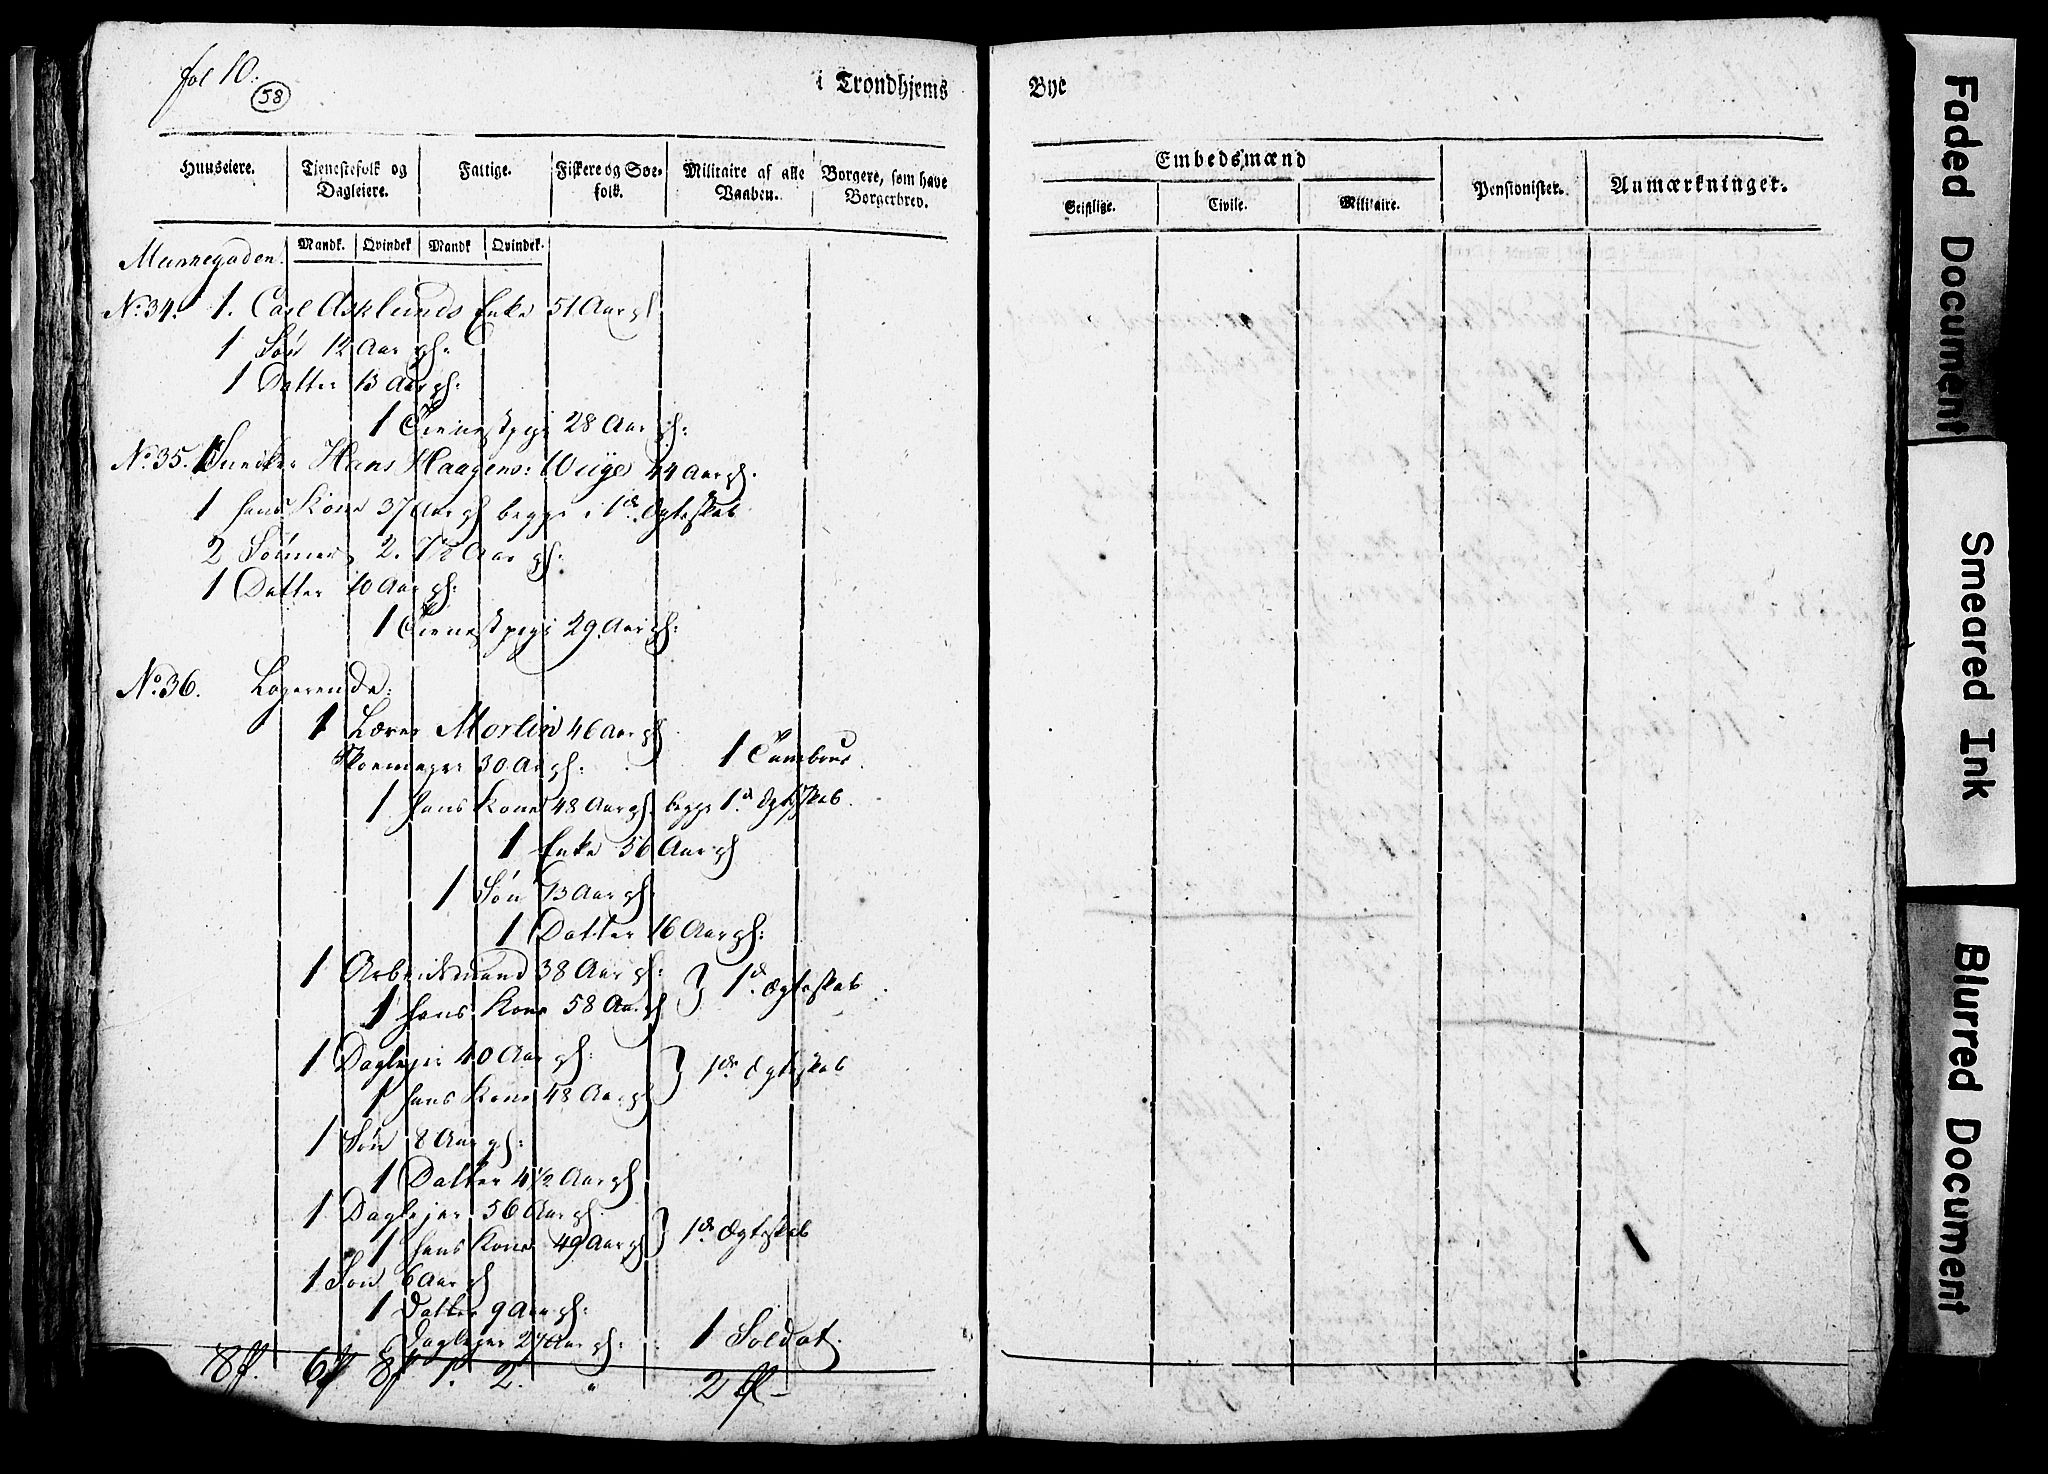 fol 10.
58
i Trondhjems
Bye
Huuseiere.
Tjenestefolk og Dagleiere.
Fattige.
Fiskere og Søefolk.
Militaire af alle Vaaben.
Borgere, som have Borgerbrev.
Embedsmænd
Geistlige.
Civile.
Militaire.
Pensionister.
Anmærkninger.
Mandk. Qvindek Mandk Qvindek.
Munkegaden.
No. 34. 1. Carl Asklunds Enke 51 Aar gl
1 Søn 12 Aar gl:
1 Datter 13 Aar gl:
1 Tienestpige 28 Aar gl:
No. 35. 1 Snedker Hans Haagens: Wiige 44 Aar gl.
1 hans Kone 37 Aar gl begge i 1de Egteskab
2 Sønner 2. 7½ Aar gl:
1 Datter 10 Aar gl:
1 Tienestpige 29 Aar gl:
No. 36. Logerende:
1 Lærer Morlin 46 Aar gl
Skoemager 30 Ar gl: 1 Tambour.
1 hans Kone 48 Aar gl. begge 1d. Egteskab.
1 Enke 56 Aar gl
1 Søn 13 Aar gl.
1 Datter 16 Aar gl:
1 Arbeidsmand 38 Aar gl: } 1d. Ægteskab
1 hans Kone 58 Aar gl
1 Daglejer 40 Aar gl: } 1de Egteskab
1 hans Kone 48 Aar gl
1 Søn 8 Aar gl:
1 Datter 4½ Aar gl
1 Daglejer 56 Aar gl. } 1de Ægteskab
1 hans Kone 49 Aar gl
1 Søn 6 Aar gl
1 Datter 9 Aar gl:
Daglejer 27 Aar gl: 1 Soldat.
8 6 8 1. 2. " 2
Faded Document
Smeared Ink
Blurred Document